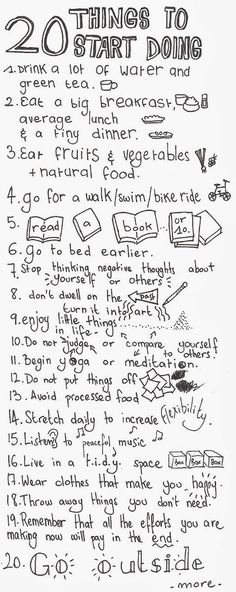 20 THINGS TO
START DOING
1. Drink a lot of water and
green tea.
2. Eat a big breakfast,
average lunch
& a tiny dinner.
3. Eat fruits & vegetables
+ natural food.
4. go for a walk/swim/bike ride
5. read a book or 10.
6. go to bed earlier.
7. Stop thinking negative thoughts about
yourself or others
8. don't dwell on the past
turn it into art
9. enjoy little things
in life.
10. Do not judge, or compare yourself
to others!
11. Begin yoga or meditation.
12. Do not put things off
13. Avoid processed food
14. Stretch daily to increase flexibility.
15. Listen to peaceful music
16. Live in a t.i.d.y. space Box Box Box
17. Wear clothes that make you happy.
18. Throw away things you don't need.
19. Remember that all the efforts you are
making now will pay in the end.
20. Go outside
-more-